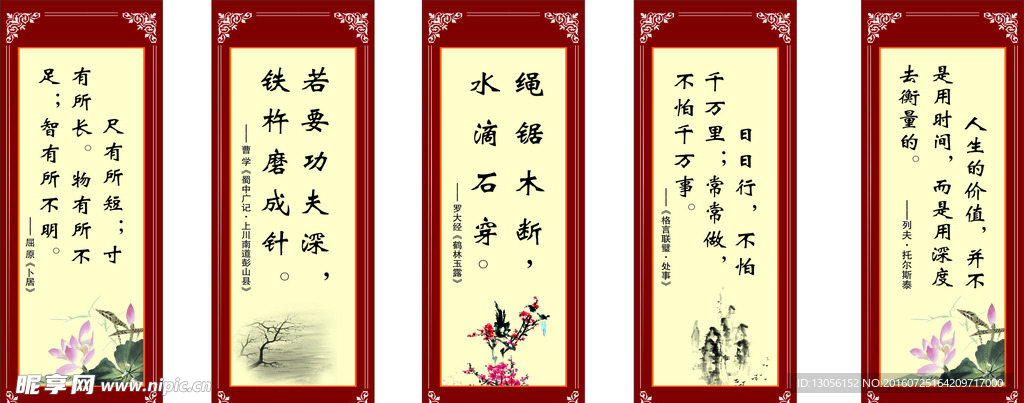 尺有所短；寸
有所长。物有所不
足；智有所不明。
——屈原《卜居》
若要功夫深，
铁杵磨成针。
——曹学《蜀中广记·上川南道彭山县》
绳锯木断，
水滴石穿。
——罗大经《鹤林玉露》
日日行，不怕
千万里；常常做，
不怕千万事。
——《格言联璧·处事》
人生的价值，并不
是用时间，而是用深度
去衡量的。
——列夫·托尔斯泰
昵享网 www.nipic.cn
ID:13056152 NO:20160725164209717000